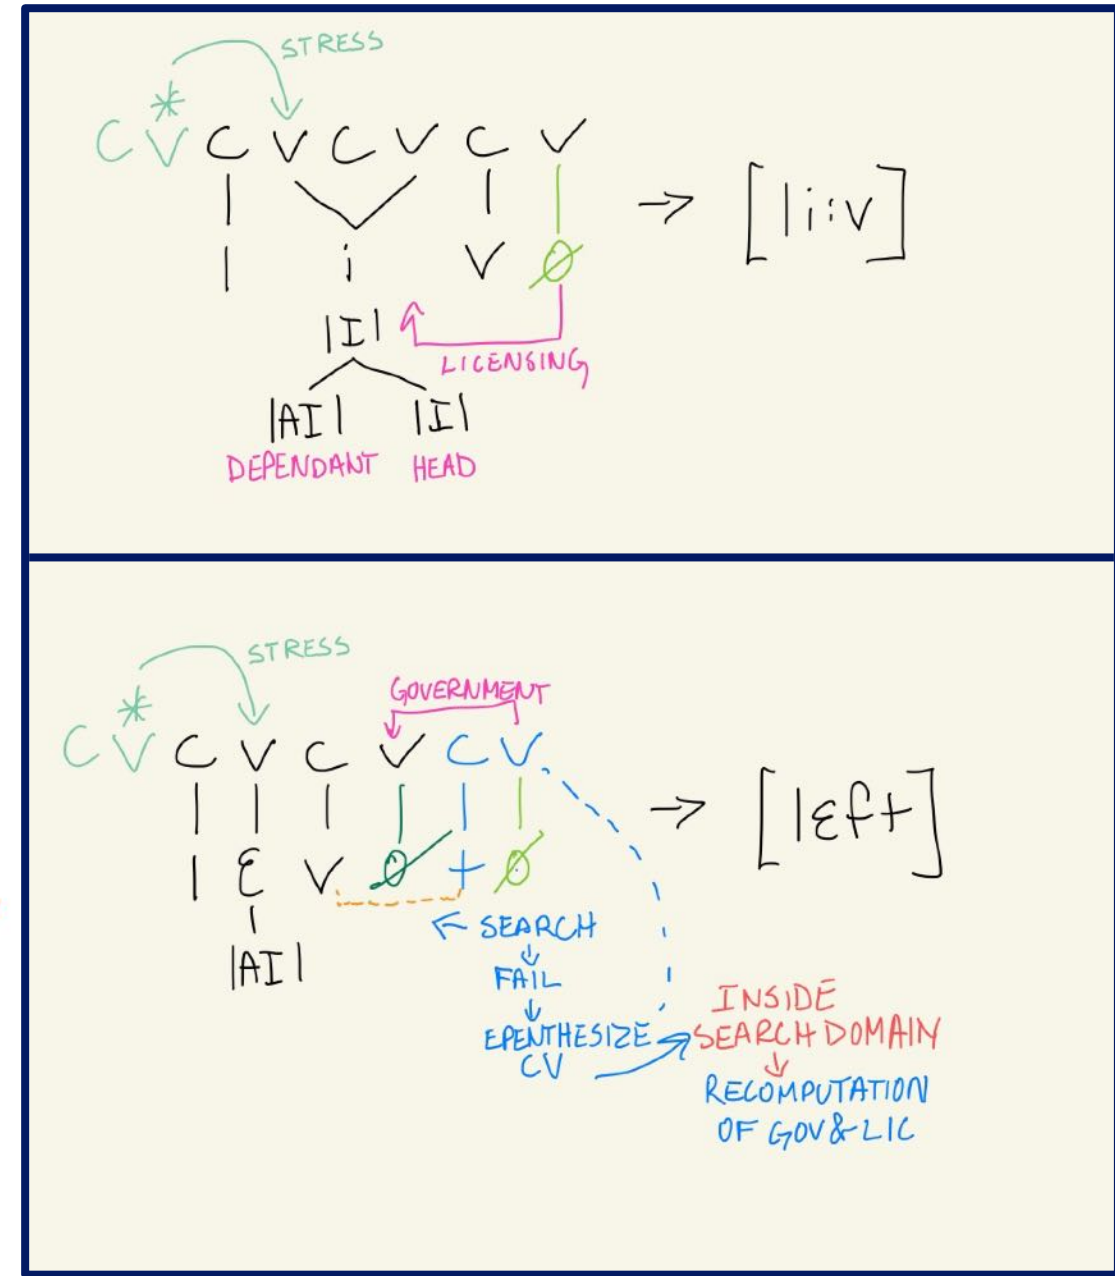 STRESS
*
C V C V C V C V
l i v ø → [li:v]
|I|
LICENSING
|AI| |I|
DEPENDANT HEAD
STRESS
GOVERNMENT
*
C V C V C V C V
l ɛ v ø t ø → [lɛft]
← SEARCH
|AI|
FAIL
INSIDE
EPENTHESIZE SEARCH DOMAIN
CV
RECOMPUTATION
OF GOV & LIC